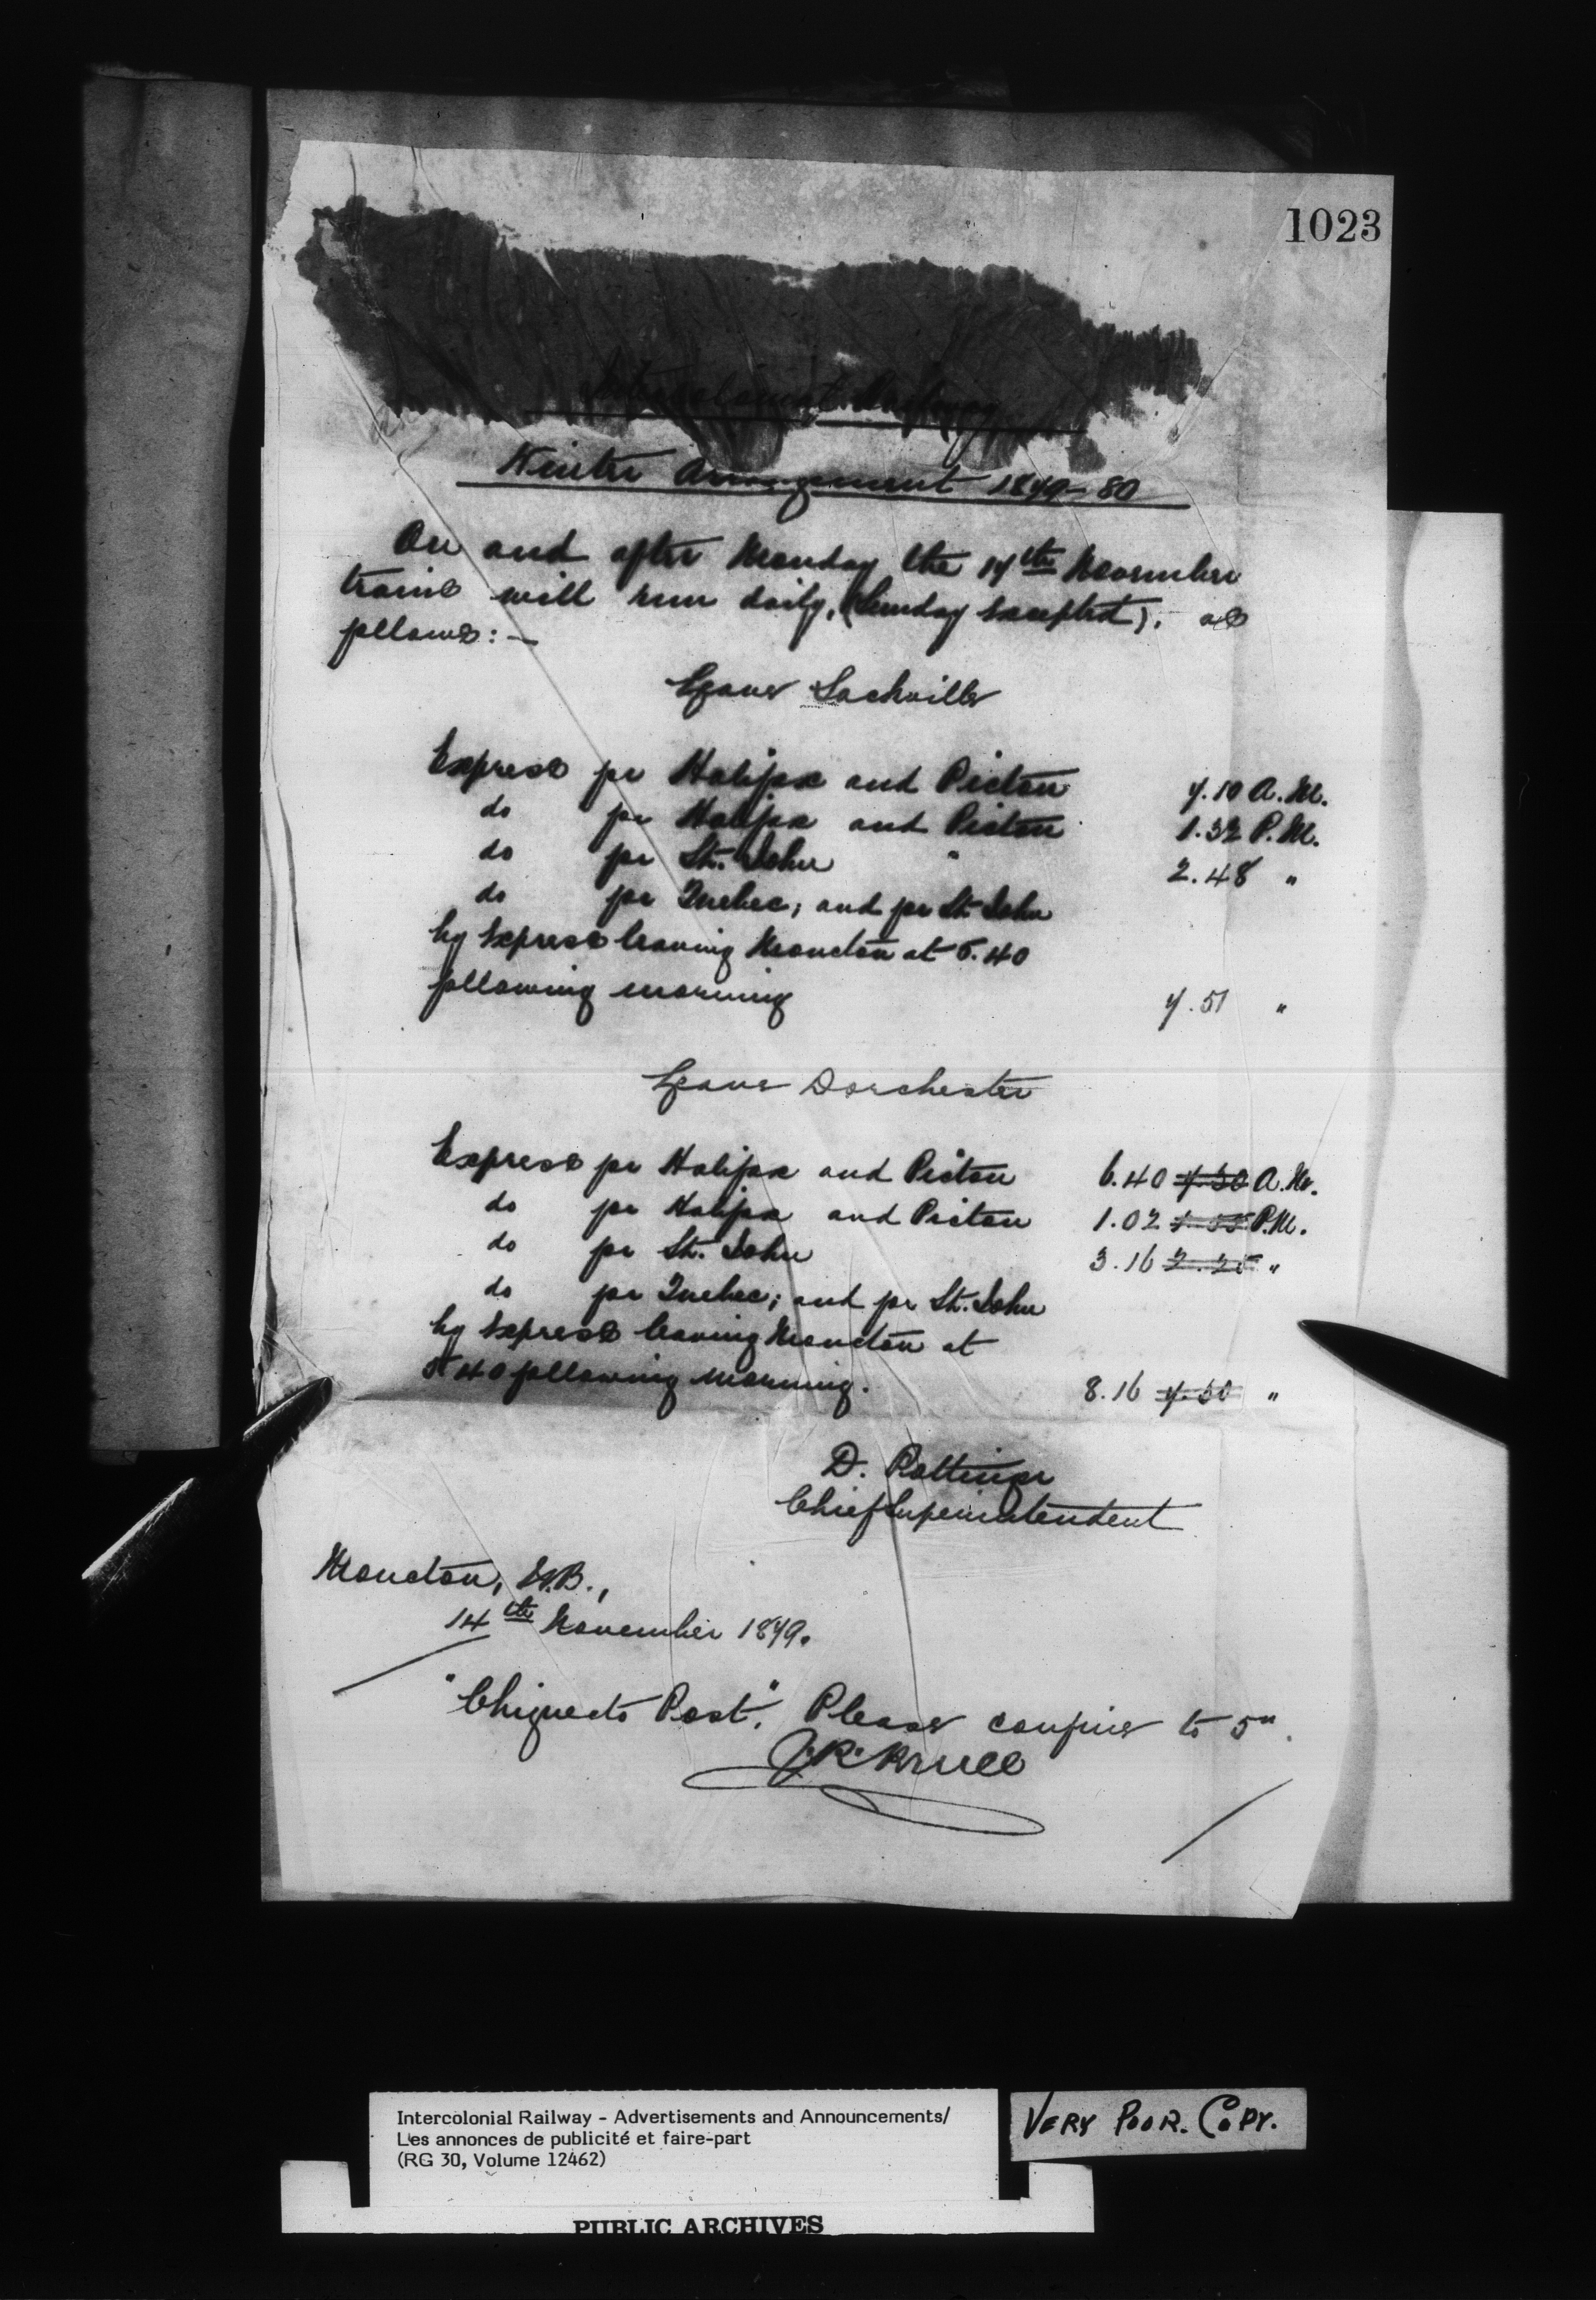 1023
Intercolonial Railway
Winter Arrangement 1879-80
On and after Monday the 17th November
trains will run daily, (Sunday excepted), as
follows:—
Leave Sackville
Express for Halifax and Pictou 7.10 A.M.
do for Halifax and Pictou 1.32 P.M.
do for St. John 2.48 "
do for Quebec; and for St. John
by Express leaving Moncton at 5.40
following morning 7.51 "
Leave Dorchester
Express for Halifax and Pictou 6.40 7.30 A.M.
do for Halifax and Pictou 1.02 1.55 P.M.
do for St. John 3.16 2.25 "
do for Quebec; and for St. John
by Express leaving Moncton at
5.40 following morning. 8.16 7.30 "
D. Pottinger
Chief Superintendent
Moncton, N.B.,
14th November 1879.
"Chignecto Post". Please confine to 5".
J.R. Bruce
Intercolonial Railway - Advertisements and Announcements/
Les annonces de publicité et faire-part
(RG 30, Volume 12462)
VERY POOR. COPY.
PUBLIC ARCHIVES